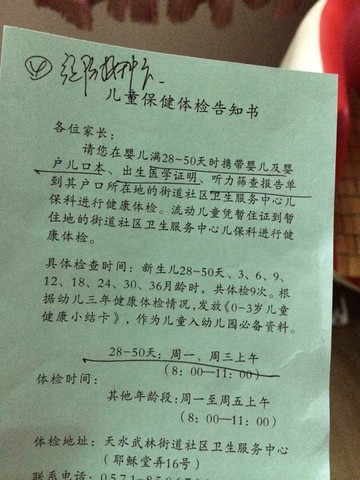 ④
儿童保健体检告知书
各位家长：
请您在婴儿满28-50天时携带婴儿及婴
户儿口本、出生医学证明、听力筛查报告单
到其户口所在地的街道社区卫生服务中心儿
保科进行健康体检。流动儿童凭暂住证到暂
住地的街道社区卫生服务中心儿保科进行健
康体检。
具体检查时间：新生儿28-50天、3、6、9、
12、18、24、30、36月龄时，共体检9次。根
据幼儿三年健康体检情况，发放《0-3岁儿童
健康小结卡》，作为儿童入幼儿园必备资料。
28-50天：周一、周三上午
（8：00—11：00）
体检时间：
其他年龄段：周一至周五上午
（8：00—11：00）
体检地址：天水武林街道社区卫生服务中心
（耶稣堂弄16号）
联系电话：0571-850